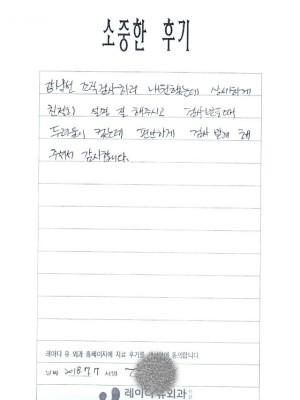 소중한 후기
갑상선 조직검사하러 내원했는데 상세하게
친절히 설명 잘 해주시고 검사받을때
두려움이 컸는데 편안하게 검사 받게 해
주셔서 감사합니다.
레이디 유 외과 홈페이지에 치료 후기를 동의합니다.
날짜 2018.7.7 서명
레이디유외과